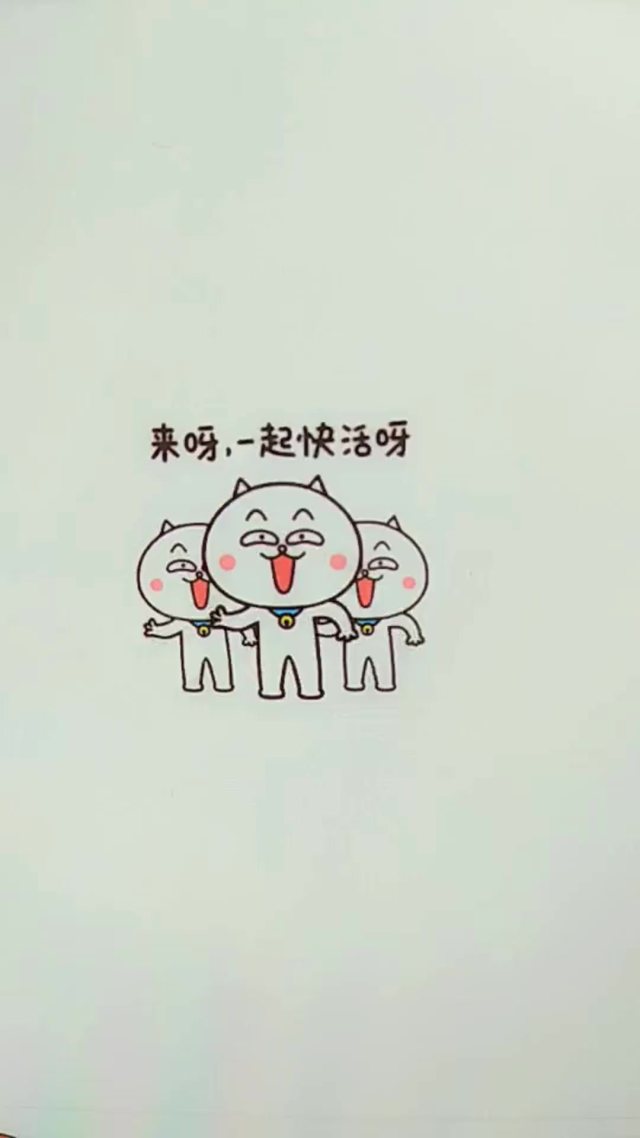 来呀,一起快活呀